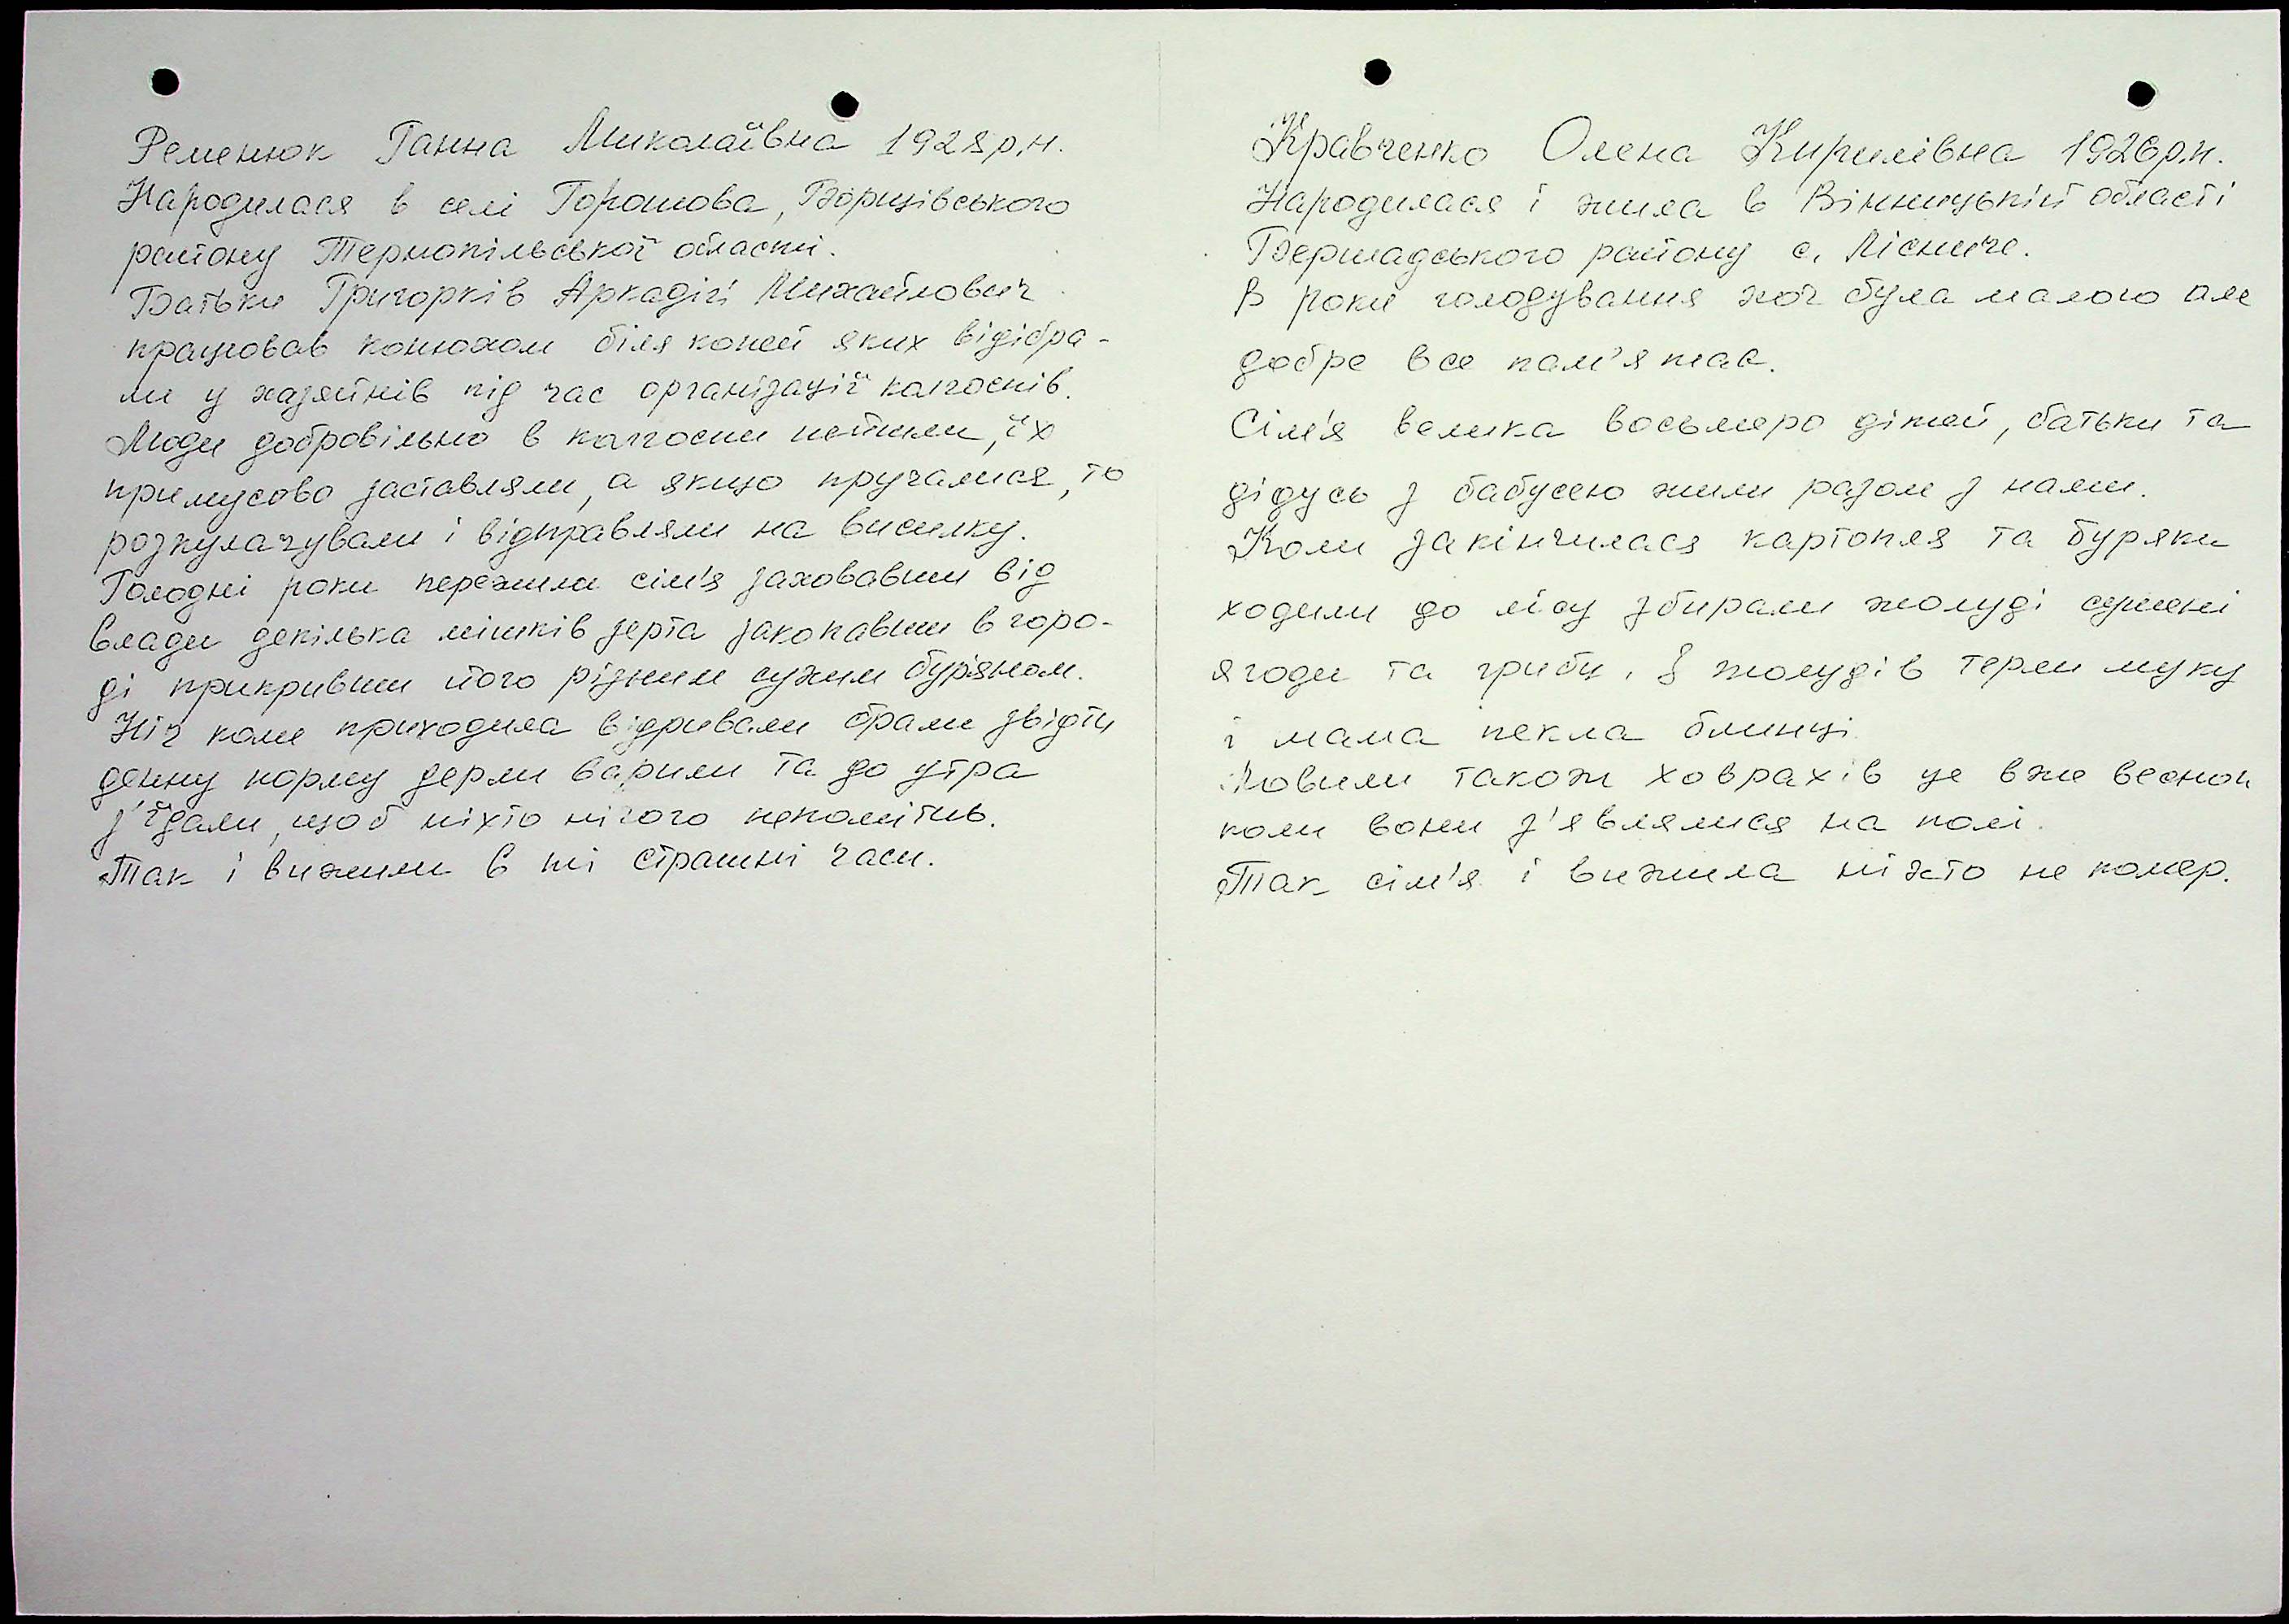 Ременюк Ганна Миколаївна 1928р.н.
Народилася в селі Горошова, Борщівського
району Тернопільської області.
Батьки Григорків Аркадій Михайлович
працював конюхом біля коней яких відібра-
ли у хазяйнів під час організації колгоспів.
Люди добровільно в колгоспи нейшли, їх
примусово заставляли, а якщо пручалися, то
розкулачували і відправляли на висилку.
Голодні роки пережила сім'я заховавши від
влади декілька мішків зерта закопавши в горо-
ді прикривши його різним сухим бур'яном.
Ніч коли приходила відривали брали звідти
денну норму дерли варили та до утра
з'їдали, щоб ніхто нічого непомітив.
Так і вижили в ті страшні часи.
Кравченко Олена Кирилівна 1926р.н.
Народилася і жила в Вінницькій області
Бершадського району с. Лісниче.
В роки голодування хоч була малого але
добре все пам'ятає.
Сім'я велика восьмеро дітей, батьки та
дідусь з бабусею жили разом з нами.
Коли закінчилася картопля та буряки
ходили до лісу збирали жолуді сушені
ягоди та грибы. З жолудів терли муку
і мама пекла блинці.
Ловили також ховрахів це вже весною
коли вони з'являлися на полі.
Так сім'я і вижила ніхто не помер.